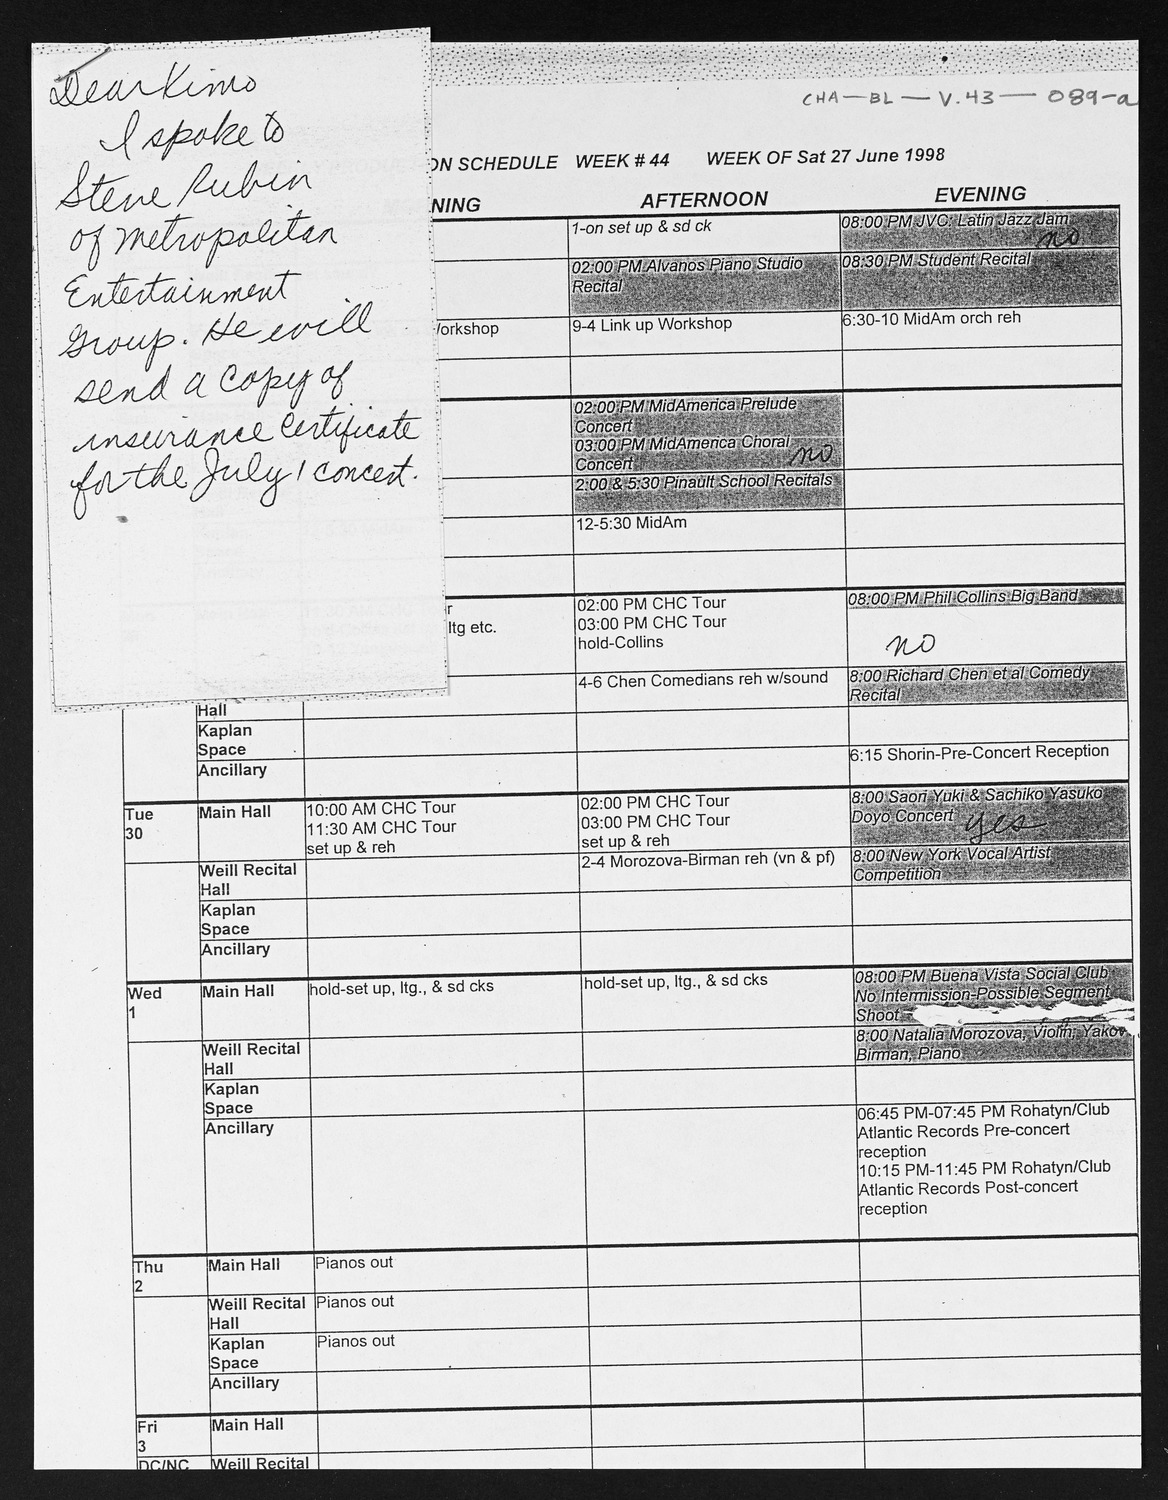 Dear Kimo
I spoke to
Steve Rubin
of Metropolitan
Entertainment
Group. He will
send a copy of
insurance certificate
for the July 1 concert.
CHA-BL-V.43-089-a
ON SCHEDULE WEEK # 44 WEEK OF Sat 27 June 1998
NING AFTERNOON EVENING
1-on set up & sd ck
08:00 PM JVC: Latin Jazz Jam
no
02:00 PM Alvanos Piano Studio
Recital
08:30 PM Student Recital
Workshop
9-4 Link up Workshop
6:30-10 MidAm orch reh
02:00 PM MidAmerica Prelude
Concert
03:00 PM MidAmerica Choral
Concert
no
2:00 & 5:30 Pinault School Recitals
12-5:30 MidAm
r
ltg etc.
02:00 PM CHC Tour
03:00 PM CHC Tour
hold-Collins
08:00 PM Phil Collins Big Band
no
4-6 Chen Comedians reh w/sound
8:00 Richard Chen et al Comedy
Recital
Hall
Kaplan
Space
Ancillary
6:15 Shorin-Pre-Concert Reception
Tue
30
Main Hall
10:00 AM CHC Tour
11:30 AM CHC Tour
set up & reh
02:00 PM CHC Tour
03:00 PM CHC Tour
set up & reh
8:00 Saori Yuki & Sachiko Yasuko
Doyo Concert
yes
Weill Recital
Hall
2-4 Morozova-Birman reh (vn & pf)
8:00 New York Vocal Artist
Competition
Kaplan
Space
Ancillary
Wed
1
Main Hall
hold-set up, ltg., & sd cks
hold-set up, ltg., & sd cks
08:00 PM Buena Vista Social Club
No Intermission-Possible Segment
Shoot
Weill Recital
Hall
8:00 Natalia Morozova, Violin; Yakov
Birman, Piano
Kaplan
Space
Ancillary
06:45 PM-07:45 PM Rohatyn/Club
Atlantic Records Pre-concert
reception
10:15 PM-11:45 PM Rohatyn/Club
Atlantic Records Post-concert
reception
Thu
2
Main Hall
Pianos out
Weill Recital
Hall
Pianos out
Kaplan
Space
Pianos out
Ancillary
Fri
3
Main Hall
DC/NC
Weill Recital